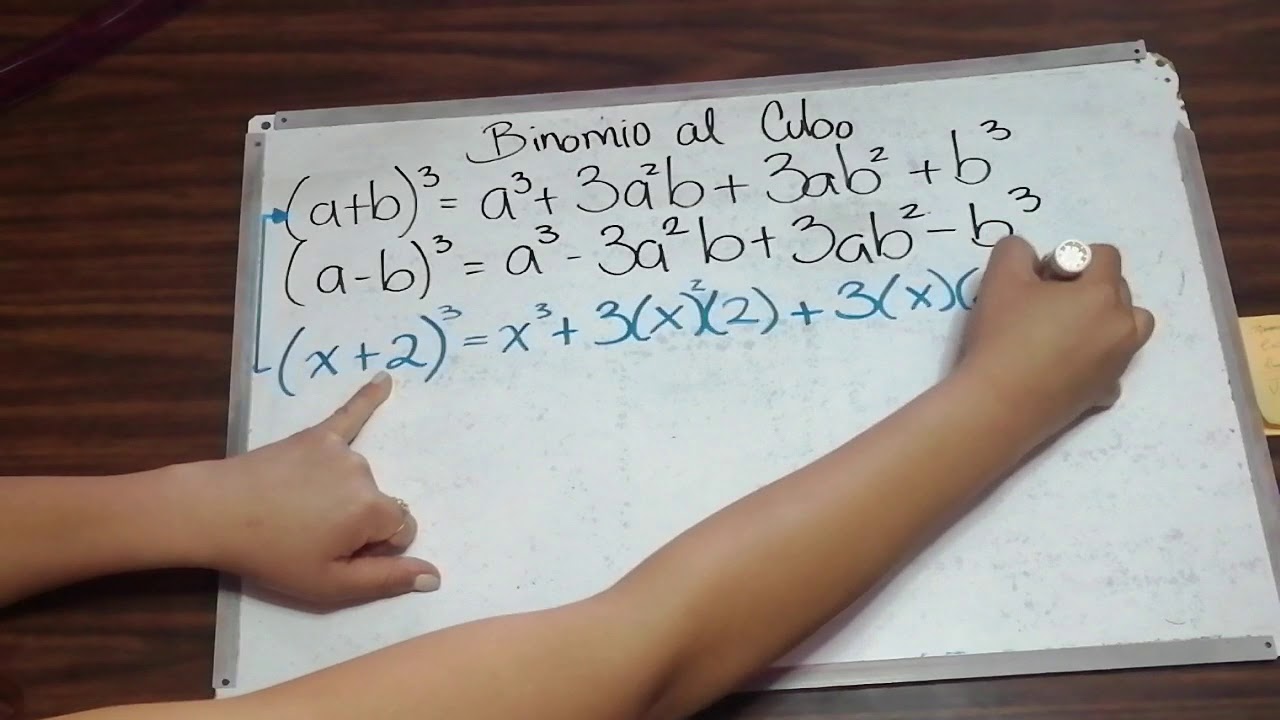 Binomio al Cubo
(a+b)³ = a³ + 3a²b + 3ab² + b³
(a-b)³ = a³ - 3a²b + 3ab² - b³
(x+2)³ = x³ + 3(x)²(2) + 3(x)(